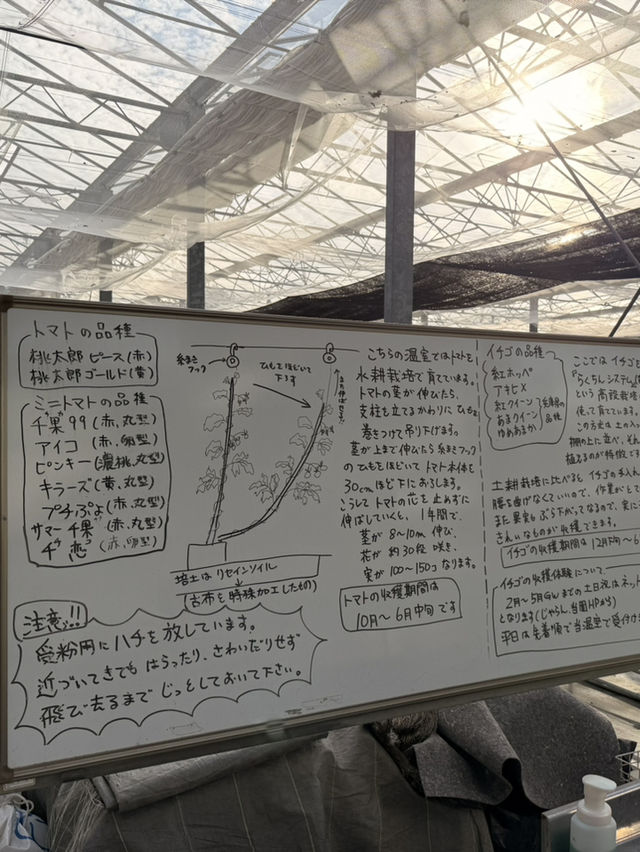 トマトの品種
桃太郎 ピース(赤)
桃太郎ゴールド(黄)
ミニトマトの品種
千果99 (赤,丸型)
アイコ (赤,卵型)
ピンキー(濃桃,丸型)
キラーズ(黄,丸型)
プチぷよ(赤,丸型)
サマー千果(赤,丸型)
(赤,卵型)
糸まき
フック
ひもをほどいて
下ろす
培土は リセインソイル
(古布を特殊加工したもの)
注意!!!
受粉用にハチを放しています。
近づいてきても はらったり、さわいだりせず
飛び去るまで じっとしておいて下さい。
こちらの温室ではトマトを
水耕栽培で育てています。
トマトの茎が伸びたら、
支柱を立てるかわりに ひもを
巻きつけて吊り下げます。
茎が上まで伸びたら糸まきフック
のひもをほどいてトマト本体を
30cmほど下におろします。
こうしてトマトの花を止めずに
伸ばしていくと、1年間で、
茎が 8〜10m 伸び、
花が 約30段 咲き、
実が 100〜150コ なります。
トマトの収穫期間は
10月〜6月中旬です
イチゴの品種
紅ホッペ
アキヒメ
紅クイーン
あまクイーン
ゆめあまか
兵庫県の
品種
ここではイチゴ
『らくちんシステム
という高設栽培
使って育てています。
この方式は土の入っ
棚の上に並べ、そ
植えるのが特徴です
土耕栽培に比べると イチゴの手入れ
腰を曲げなくていいので、作業がとて
また果実もぶら下がってなるので、実に
きれいなものが収穫できます。
イチゴの収穫期間は12月下旬〜6
イチゴの収穫体験について
2月〜5月GWまでの土日祝はネット
となります(じゃらん、当園HPから)
平日は先着順で当温室で受付け